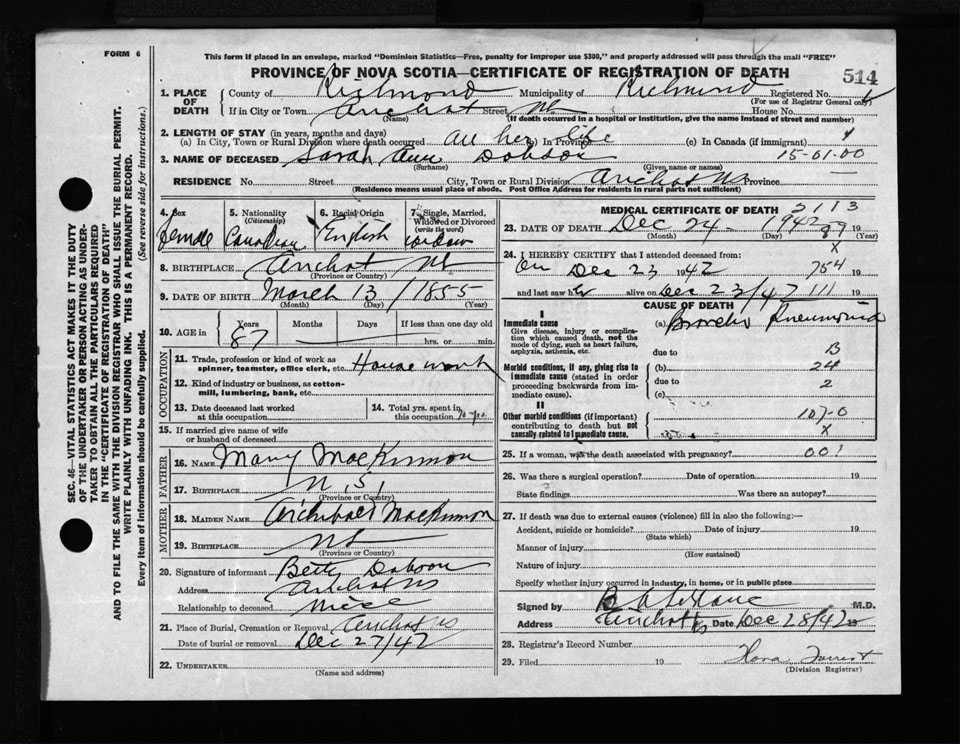 FORM 6
This form if placed in an envelope, marked "Dominion Statistics—Free, penalty for improper use $300," and properly addressed will pass through the mail "FREE"
PROVINCE OF NOVA SCOTIA—CERTIFICATE OF REGISTRATION OF DEATH 514
1. PLACE OF DEATH County of Richmond Municipality of Richmond Registered No.
(For use of Registrar General only)
If in City or Town Arichat Street NS House No.
(Name) (If death occurred in a hospital or institution, give the name instead of street and number)
2. LENGTH OF STAY (in years, months and days)
(a) In City, Town or Rural Division where death occurred all her life (b) In Province (c) In Canada (if immigrant)
3. NAME OF DECEASED Sarah Ann Dobson 15-01-00
(Surname) (Given name or names)
RESIDENCE No. Street City, Town or Rural Division Arichat NS Province
(Residence means usual place of abode. Post Office Address for residents in rural parts not sufficient)
4. Sex Female
5. Nationality (Citizenship) Canadian
6. Racial Origin English
7. Single, Married, Widowed or Divorced (write the word) widow
8. BIRTHPLACE Arichat NS
(Province or Country)
9. DATE OF BIRTH March 13/1855
(Month) (Day) (Year)
10. AGE in Years Months Days If less than one day old
87 hrs. or min.
OCCUPATION
11. Trade, profession or kind of work as spinner, teamster, office clerk, etc. House work
12. Kind of industry or business, as cotton-mill, lumbering, bank, etc.
13. Date deceased last worked at this occupation
14. Total yrs. spent in this occupation
15. If married give name of wife or husband of deceased
FATHER
16. NAME Mary MacKinnon
17. BIRTHPLACE N.S.
(Province or Country)
MOTHER
18. MAIDEN NAME Archibald MacKinnon
19. BIRTHPLACE NS
(Province or Country)
20. Signature of informant Betty Dobson
Address Arichat NS
Relationship to deceased niece
21. Place of Burial, Cremation or Removal Arichat NS
Date of burial or removal Dec 27/42
22. UNDERTAKER
(Name and address)
MEDICAL CERTIFICATE OF DEATH 2113
23. DATE OF DEATH Dec 24 1942 87 19
(Month) (Day) (Year)
X
24. I HEREBY CERTIFY that I attended deceased from:
On Dec 23 1942 754 19
and last saw her alive on Dec 23/42 111 19
CAUSE OF DEATH
I
Immediate cause
Give disease, injury or complication which caused death, not the mode of dying, such as heart failure, asphyxia, asthenia, etc.
(a) Broncho Pneumonia
due to B
Morbid conditions, if any, giving rise to immediate cause (stated in order proceeding backwards from immediate cause).
(b) 24
due to 2
(c)
II
Other morbid conditions (if important) contributing to death but not causally related to immediate cause.
107-0
X
25. If a woman, was the death associated with pregnancy? 001
26. Was there a surgical operation? Date of operation 19
State findings Was there an autopsy?
27. If death was due to external causes (violence) fill in also the following:—
Accident, suicide or homicide? Date of injury 19
(State which)
Manner of injury
(How sustained)
Nature of injury
Specify whether injury occurred in industry, in home, or in public place
Signed by M.D.
Address Arichat NS Date Dec 28/42 19
28. Registrar's Record Number
29. Filed 19 Flora Forrest
(Division Registrar)
SEC. 46—VITAL STATISTICS ACT MAKES IT THE DUTY
OF THE UNDERTAKER OR PERSON ACTING AS UNDER-
TAKER TO OBTAIN ALL THE PARTICULARS REQUIRED
IN THE "CERTIFICATE OF REGISTRATION OF DEATH"
AND TO FILE THE SAME WITH THE DIVISION REGISTRAR WHO SHALL ISSUE THE BURIAL PERMIT.
WRITE PLAINLY WITH UNFADING INK. THIS IS A PERMANENT RECORD.
Every item of information should be carefully supplied. (See reverse side for instructions.)